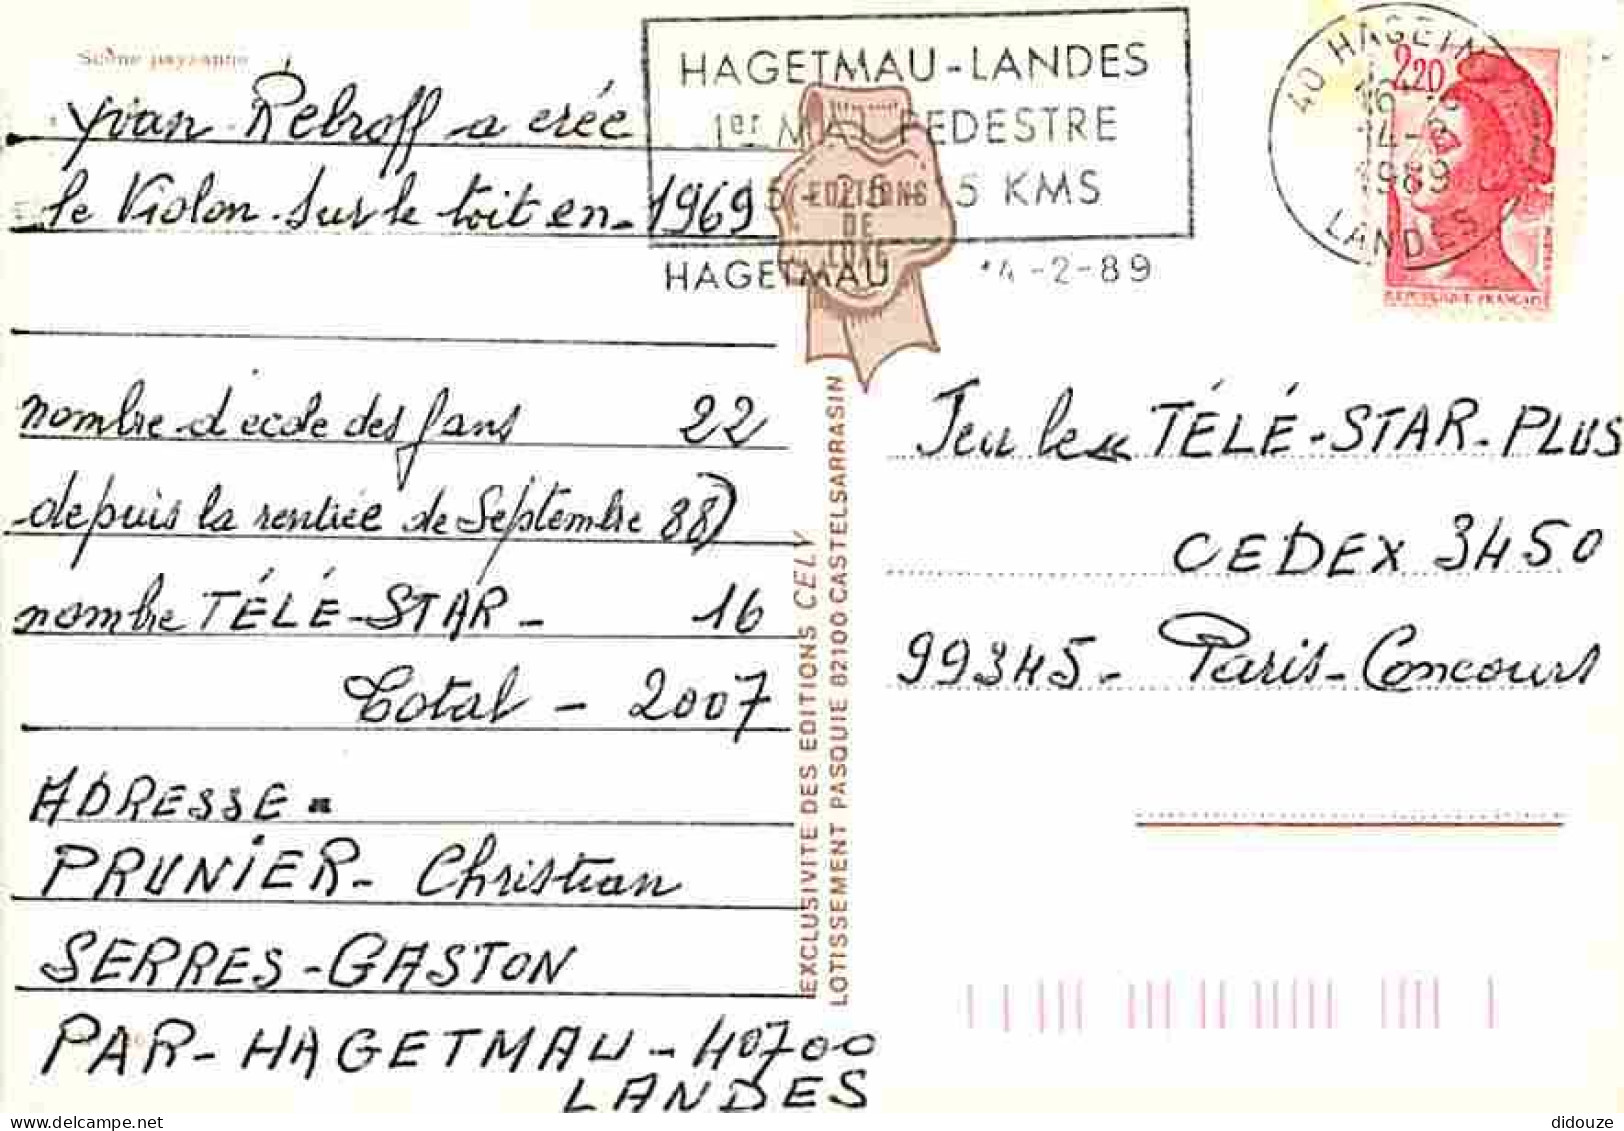 Scène paysanne
Yvan Rebroff a créé
le Violon sur le toit en - 1969
nombre d'école des fans 22
depuis la rentrée de Septembre 88)
nombre TÉLÉ-STAR - 16
Total - 2007
ADRESSE =
PRUNIER - Christian
SERRES-GASTON
PAR-HAGETMAU - 40700
LANDES
HAGETMAU-LANDES
1er MAI PEDESTRE
5 KMS
HAGETMAU -2-89
EDITIONS
DE
LUXE
EXCLUSIVITE DES EDITIONS CELY
LOTISSEMENT PASQUIE 82100 CASTELSARRASIN
40 HAGETM
16
14-2
1989
LANDES
2,20
REPUBLIQUE FRANÇAISE
Jeu le « TÉLÉ-STAR-PLUS
CEDEX 3450
99345 - Paris-Concours
didouze